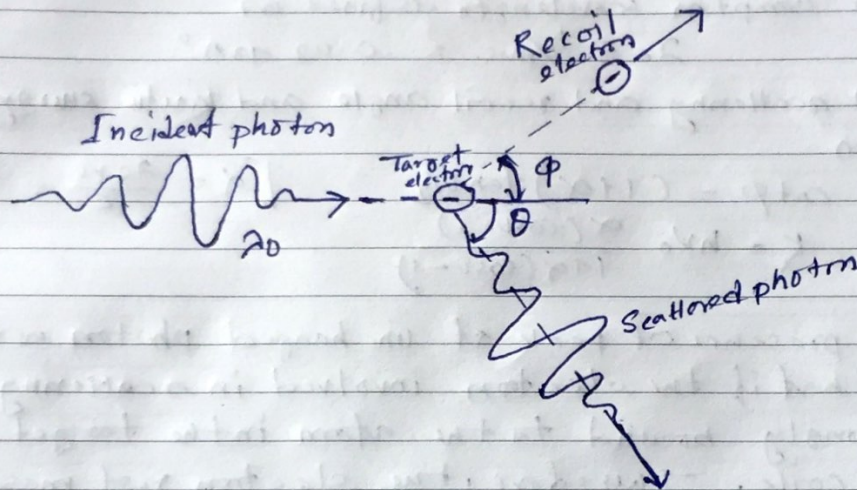 Recoil
electron
Incident photon
Target
electron
Φ
θ
λ0
Scattered photon